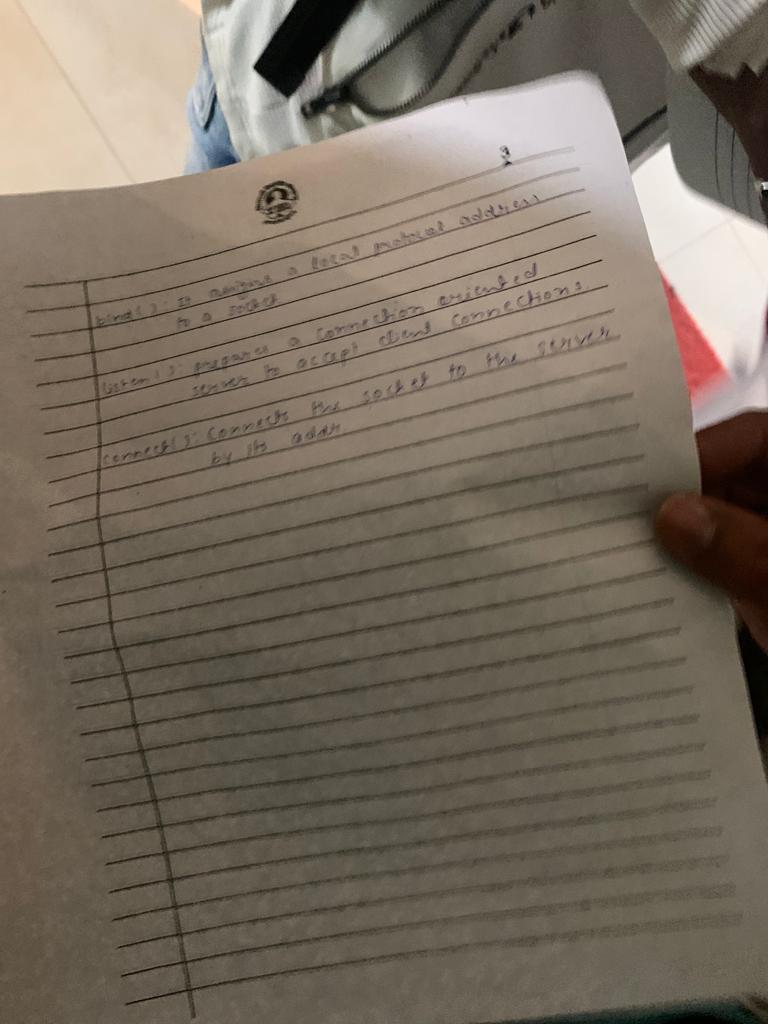 3
bind(): It assigns a local protocol address
to a socket
listen(): prepares a connection oriented
server to accept client connections.
connect(): connects the socket to the server
by its addr